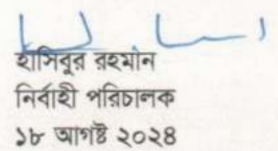 হাসিবুর রহমান
নির্বাহী পরিচালক
১৮ আগষ্ট ২০২৪